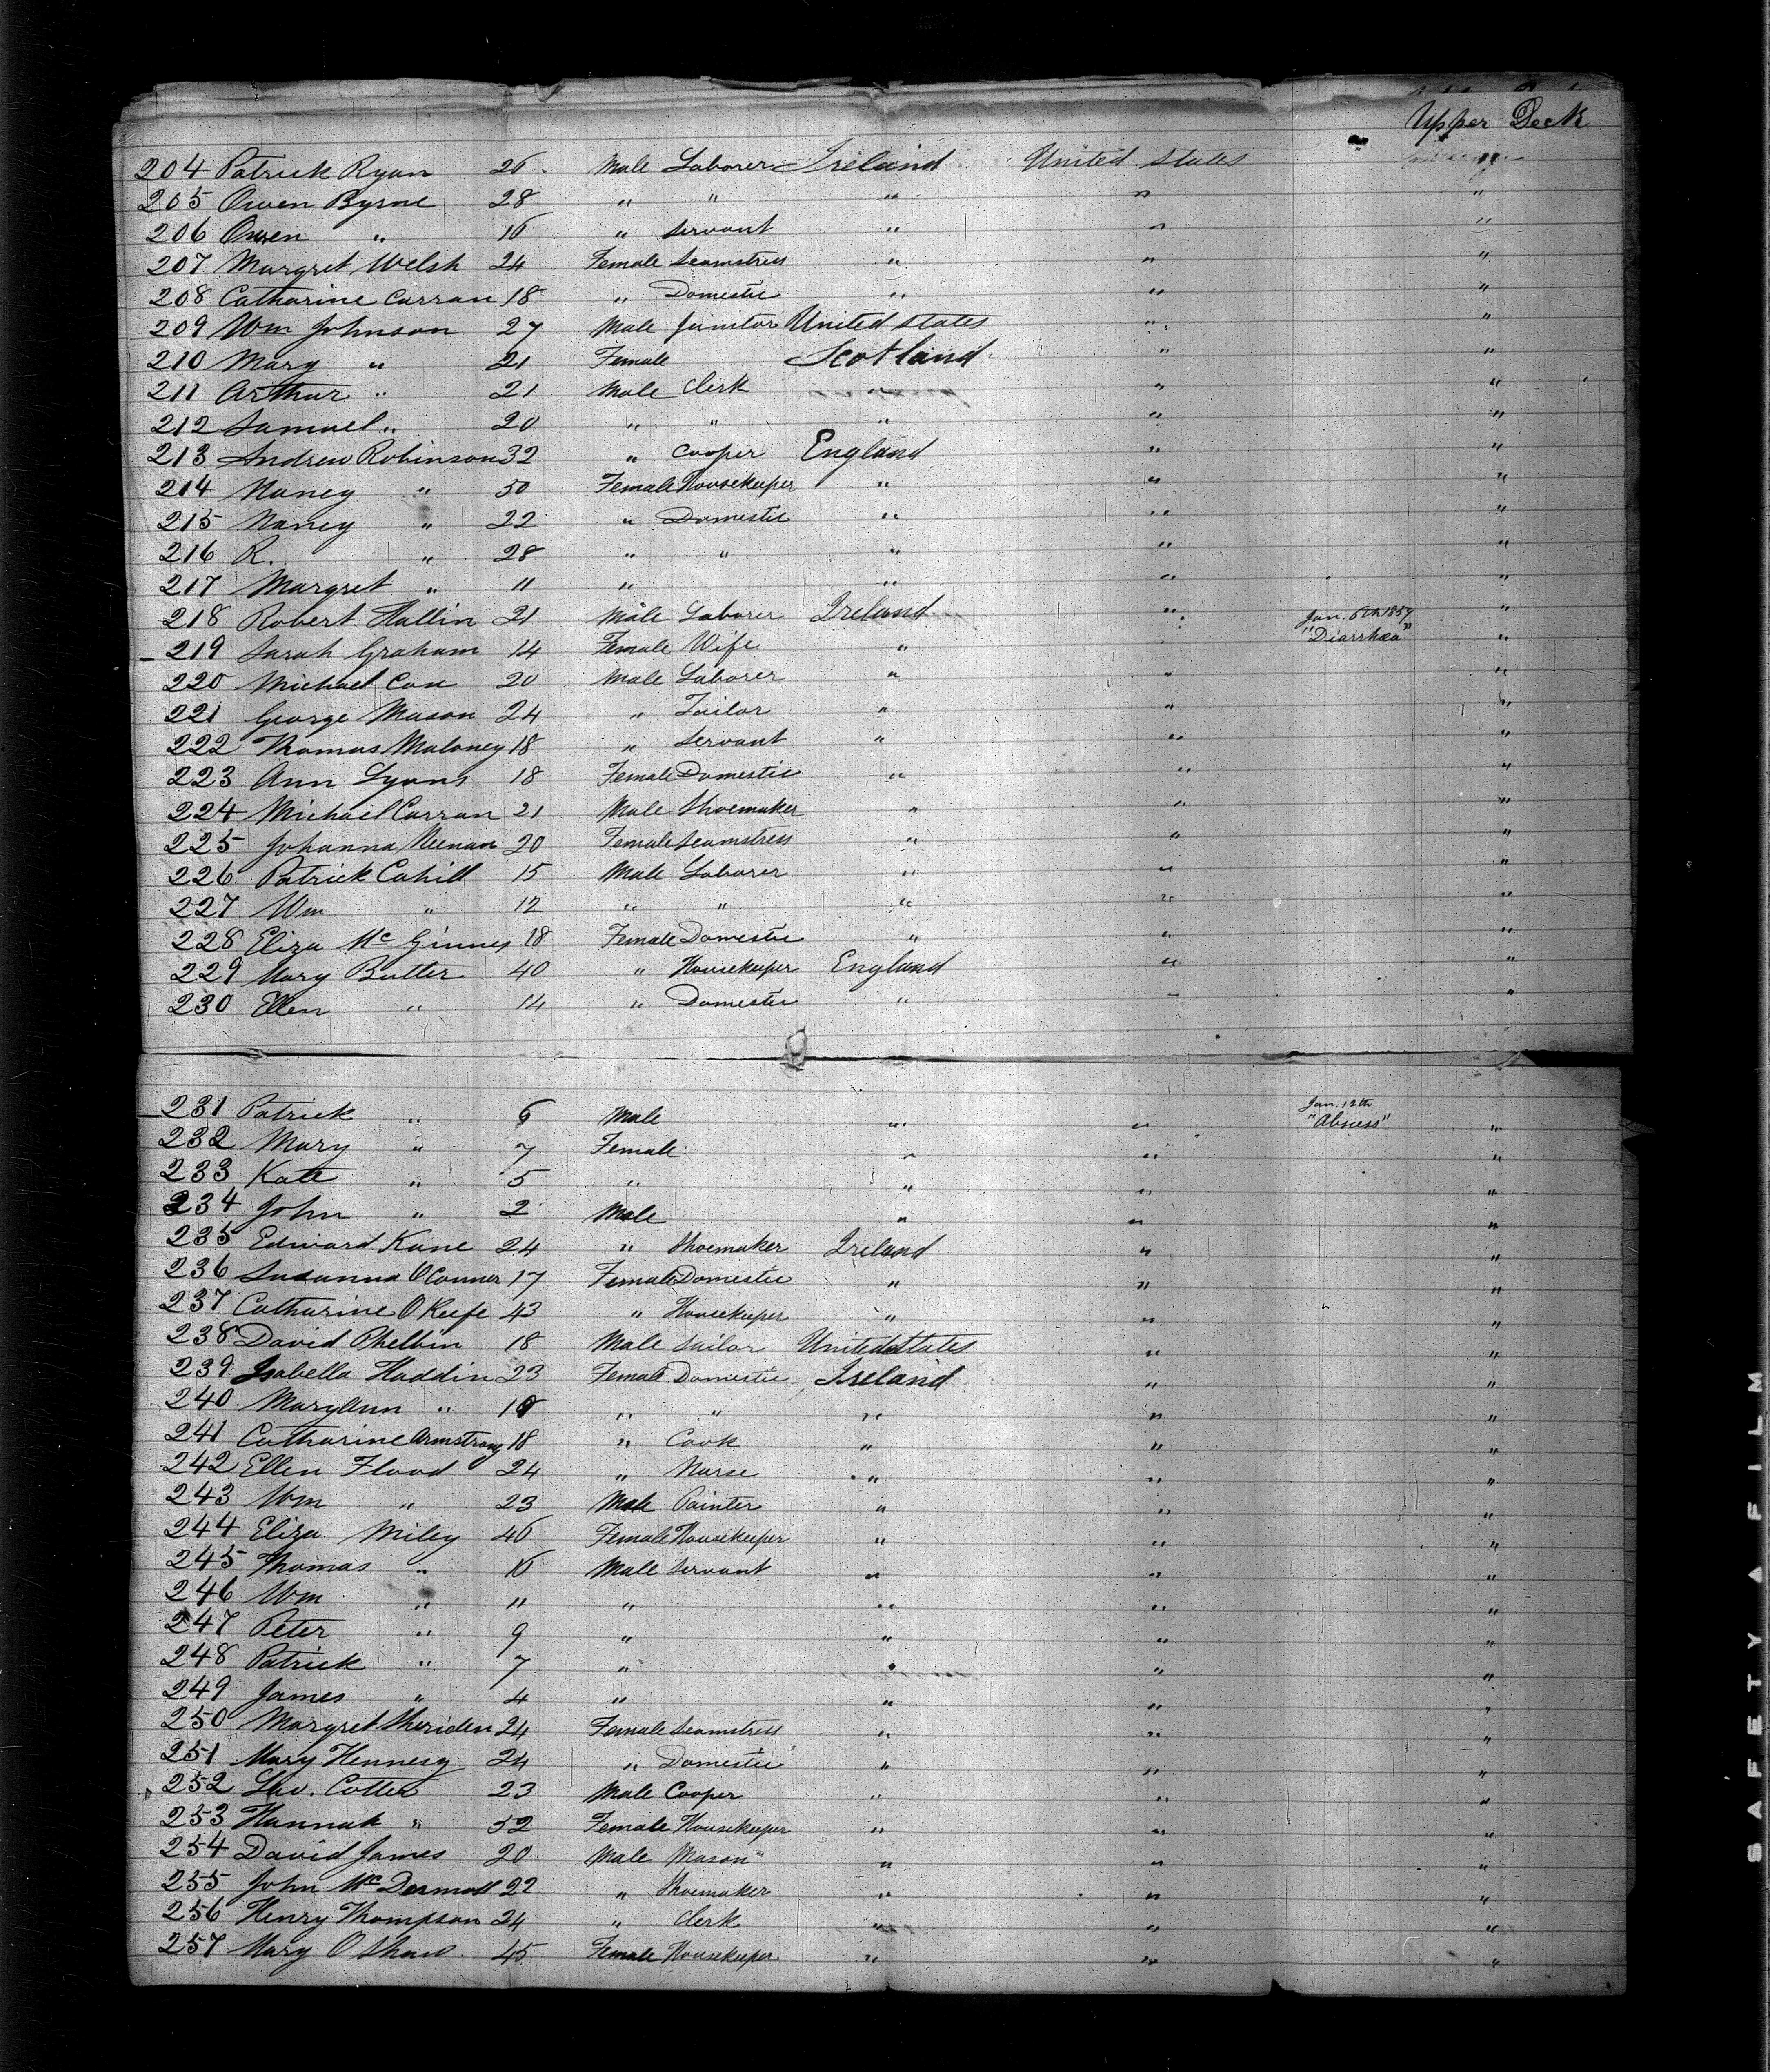 Upper Deck
204 Patrick Ryan 26 Male Laborer Ireland United States
205 Owen Byrne 28 " " " " "
206 Owen " 16 " Servant " " "
207 Margret Welsh 24 Female Seamstress " " "
208 Catharine Curran 18 " Domestic " " "
209 Wm Johnson 27 Male Janitor United States " "
210 Mary " 21 Female Scotland " "
211 Arthur " 21 Male Clerk " " "
212 Samuel " 20 " " " " "
213 Andrew Robinson 32 " Cooper England " "
214 Nancy " 50 Female Housekeeper " " "
215 Nancy " 22 " Domestic " " "
216 R. " 28 " " " " "
217 Margret " 11 " " " "
218 Robert Hallin 21 Male Laborer Ireland " "
219 Sarah Graham 14 Female Wife " Jan. 6th 1857 "Diarrhea" "
220 Michael Cox 20 Male Laborer " " "
221 George Mason 24 " Tailor " " "
222 Thomas Maloney 18 " Servant " " "
223 Ann Lyons 18 Female Domestic " " "
224 Michael Curran 21 Male Shoemaker " " "
225 Johanna Neenan 20 Female Seamstress " " "
226 Patrick Cahill 15 Male Laborer " " "
227 Wm " 12 " " " " "
228 Eliza McGinnes 18 Female Domestic " " "
229 Mary Butler 40 " Housekeeper England " "
230 Ellen " 14 " Domestic " " "
231 Patrick " 6 Male " " Jan. 12th "Abscess" "
232 Mary " 7 Female " " "
233 Kate " 5 " " " "
234 John " 2 Male " " "
235 Edward Kane 24 " Shoemaker Ireland " "
236 Susanna OConner 17 Female Domestic " " "
237 Catharine OKeefe 43 " Housekeeper " " "
238 David Phelbin 18 Male Sailor United States " "
239 Isabella Haddin 23 Female Domestic Ireland " "
240 Maryann " " " " " "
241 Catharine Armstrong 18 " Cook " " "
242 Ellen Flood 24 " Nurse " " "
243 Wm " 23 Male Painter " " "
244 Eliza Miley 46 Female Housekeeper " " "
245 Thomas " 16 Male Servant " " "
246 Wm " 11 " " " "
247 Peter " 9 " " " "
248 Patrick " 7 " " " "
249 James " 4 " " " "
250 Margret Sheriden 24 Female Seamstress " " "
251 Mary Hennesy 24 " Domestic " " "
252 Cotter 23 Male Cooper " " "
253 Hannah " 52 Female Housekeeper " " "
254 David James 20 Male Mason " " "
255 John McDermott 22 " Shoemaker " " "
256 Henry Thompson 24 " Clerk " " "
257 Mary OShaw 45 Female Housekeeper " " "
SAFETY FILM